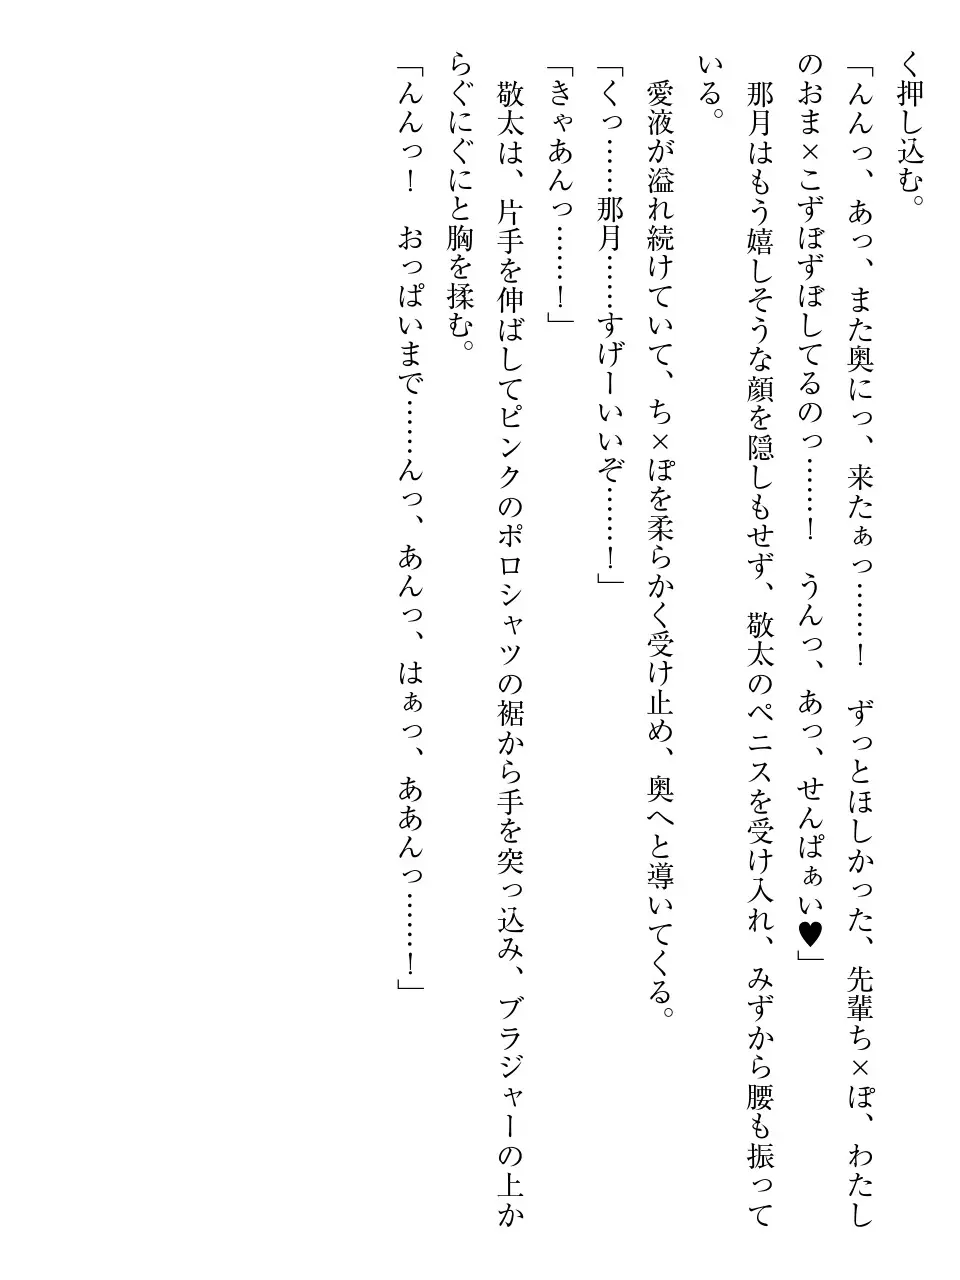 く押し込む。
「んんっ、あっ、また奥にっ、来たぁっ……！　ずっとほしかった、先輩ち×ぽ、わたし
のおま×こずぼずぼしてるのっ……！　うんっ、あっ、せんぱぁい♥」
　那月はもう嬉しそうな顔を隠しもせず、敬太のペニスを受け入れ、みずから腰も振って
いる。
　愛液が溢れ続けていて、ち×ぽを柔らかく受け止め、奥へと導いてくる。
「くっ……那月……すげーいいぞ……！」
「きゃあんっ……！」
　敬太は、片手を伸ばしてピンクのポロシャツの裾から手を突っ込み、ブラジャーの上か
らぐにぐにと胸を揉む。
「んんっ！　おっぱいまで……んっ、あんっ、はぁっ、ああんっ……！」